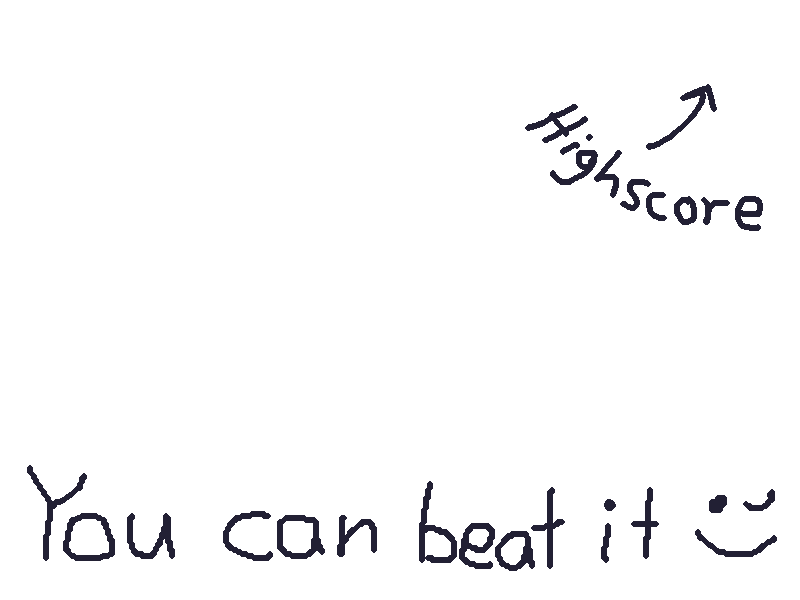 Highscore
You can beat it